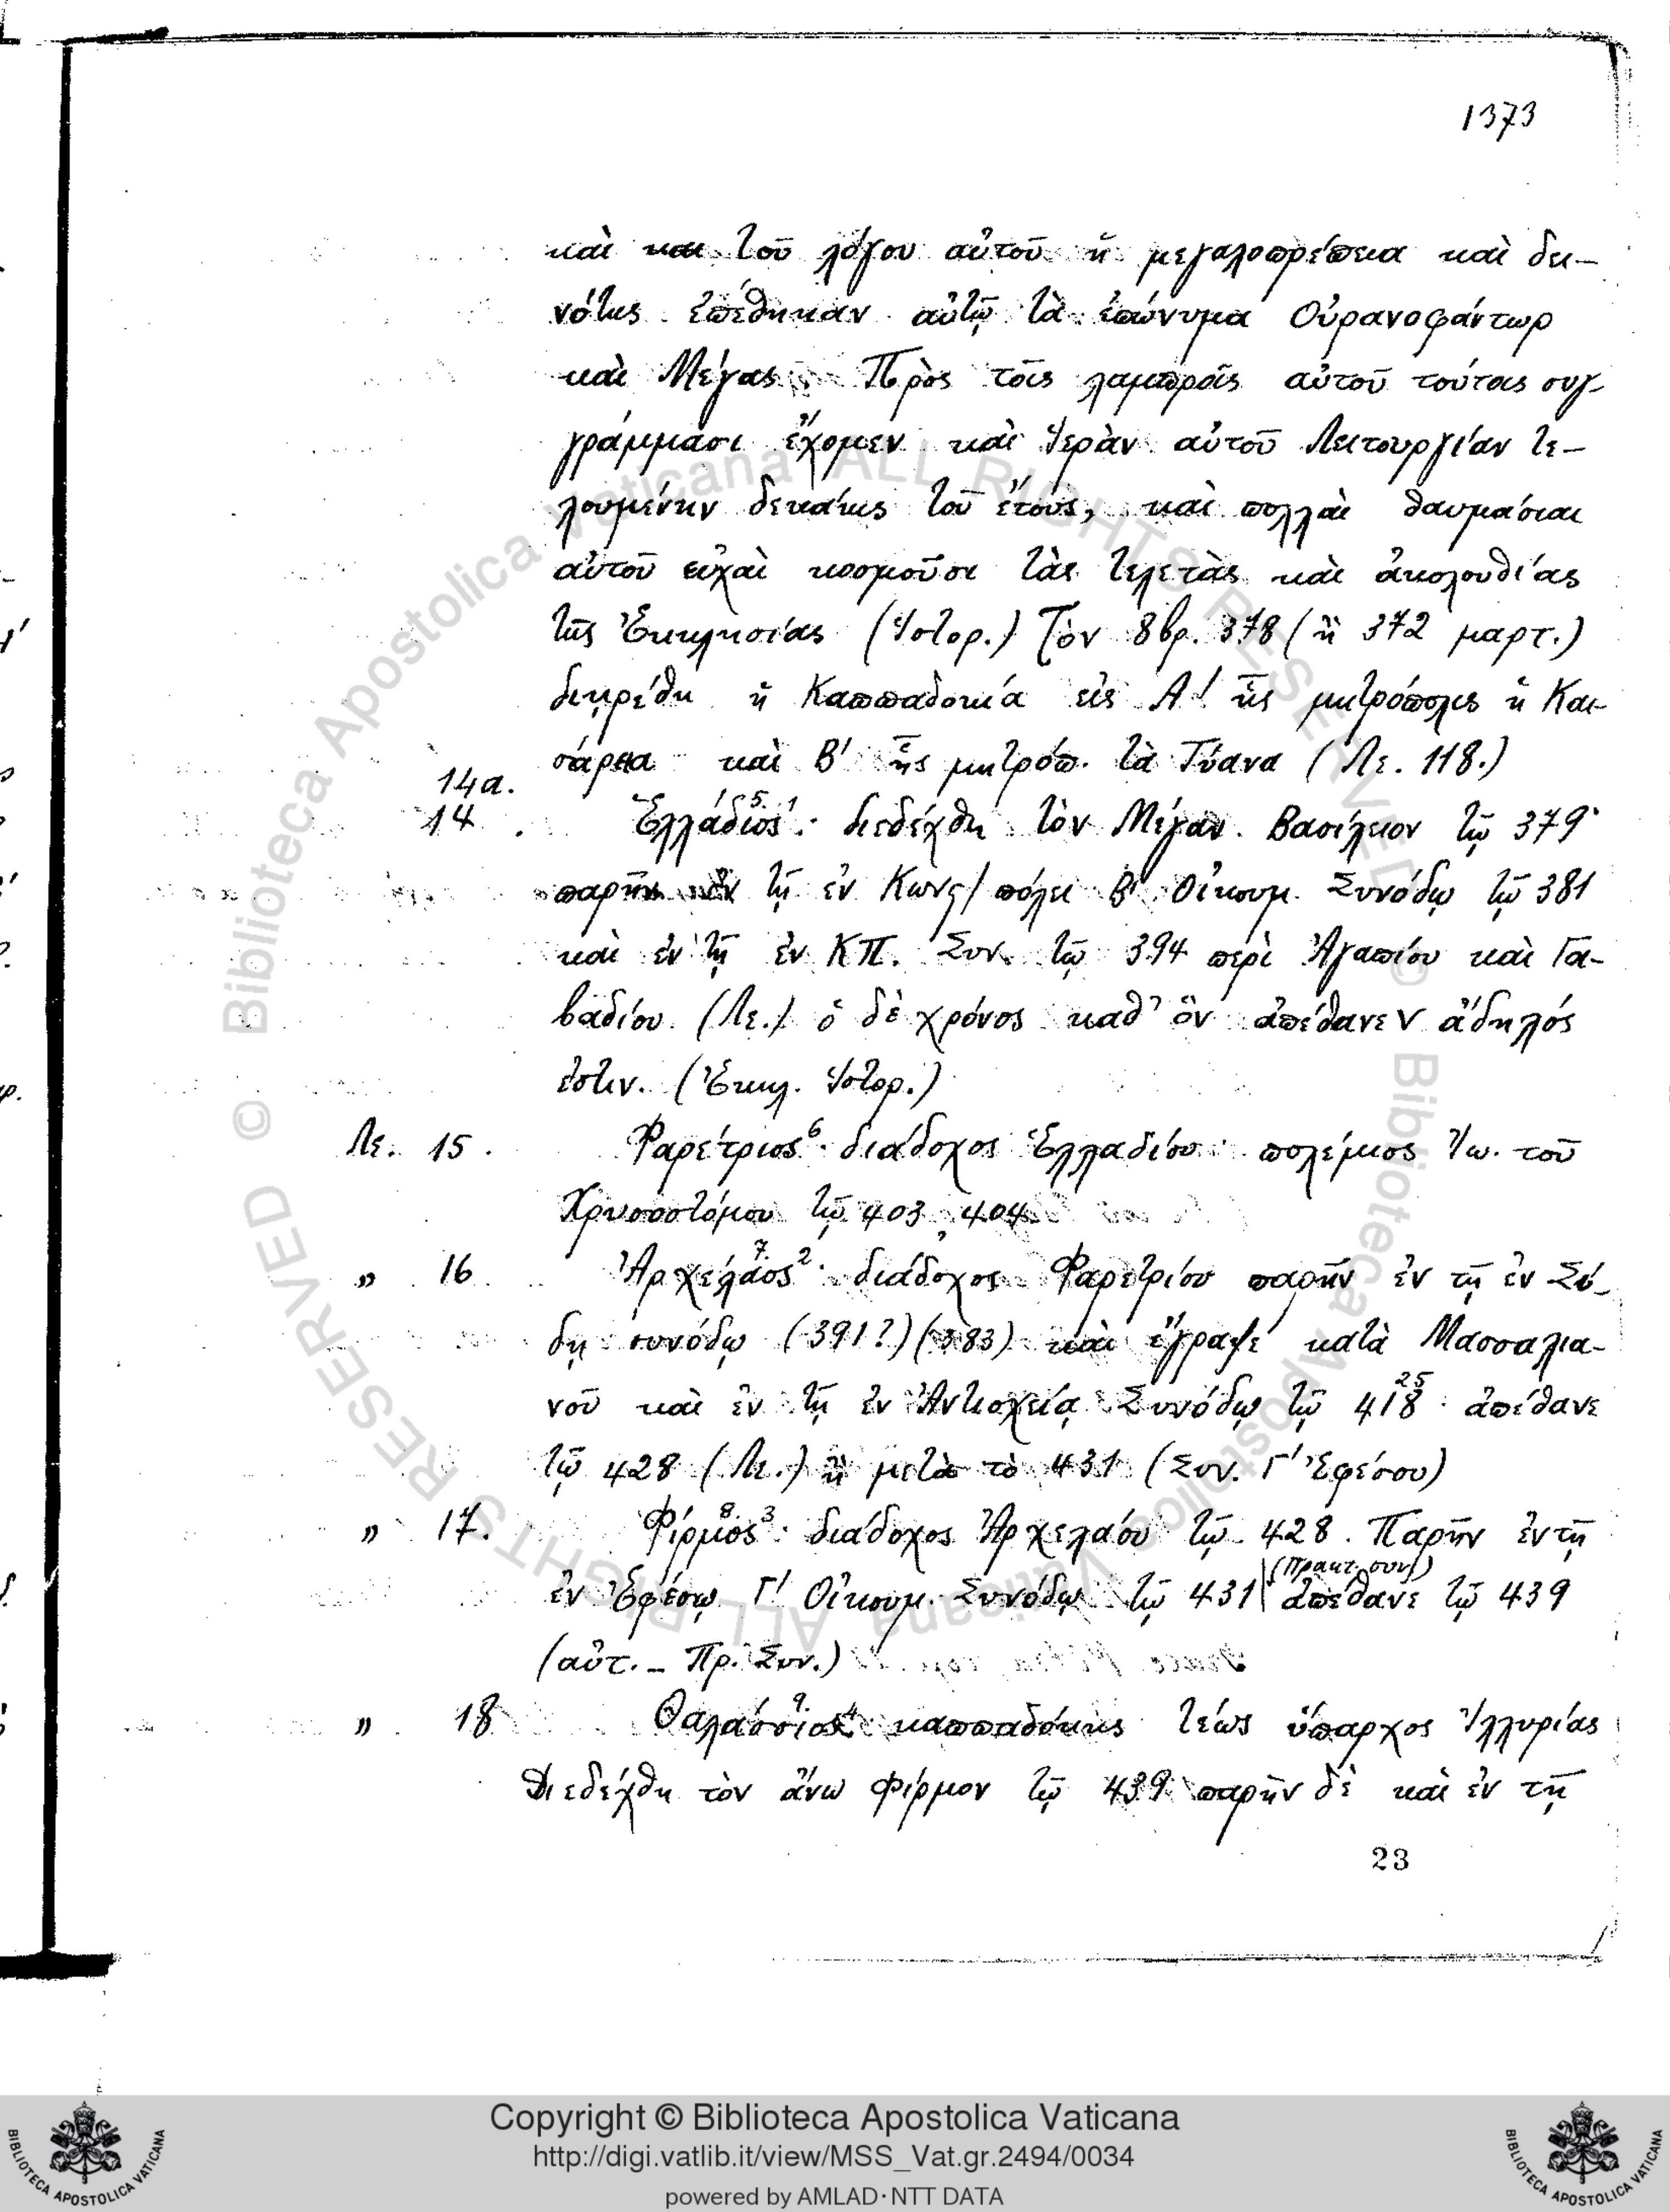 1373
καὶ και τοῦ λόγου αὐτοῦ ἡ μεγαλοπρέπεια καὶ δει-
νότης ἐπέθηκαν αὐτῷ τὰ ἐπώνυμα Οὐρανοφάντωρ
καὶ Μέγας. Πρὸς τοῖς λαμπροῖς αὐτοῦ τούτοις συγ-
γράμμασι ἔχομεν καὶ ἱερὰν αὐτοῦ Λειτουργίαν τε-
λουμένην δεκάκις τοῦ ἔτους, καὶ πολλαὶ θαυμάσιαι
αὐτοῦ εὐχαὶ κοσμοῦσι τὰς τελετὰς καὶ ἀκολουθίας
τῆς Ἐκκλησίας (Ἱστορ.) Τὸν 8βρ. 378 (ἢ 372 μαρτ.)
διῃρέθη ἡ Καππαδοκία εἰς Α! ἧς μητρόπολις ἡ Και-
σάρεια καὶ Β' ἧς μητρόπ. τὰ Τύανα (Λε. 118.)
14α.
14 . Ἑλλάδιος 5. 1· διεδέχθη τὸν Μέγαν Βασίλειον τῷ 379·
παρῆν ἐν τῇ ἐν Κωνς/πόλει Β' Οἰκουμ. Συνόδῳ τῷ 381
καὶ ἐν τῇ ἐν ΚΠ. Συν. τῷ 394 περὶ Ἀγαπίου καὶ Γα-
βαδίου (Λε.) ὁ δὲ χρόνος καθ' ὃν ἀπέθανεν ἄδηλός
ἐστιν. (Ἐκκλ. Ἱστορ.)
Λε. 15 . Φαρέτριος 6· διάδοχος Ἑλλαδίου· πολέμιος Ἰω. τοῦ
Χρυσοστόμου τῷ 403, 404
„ 16 Ἀρχέλαος 7. 2· διάδοχος Φαρετρίου παρῆν ἐν τῇ ἐν Σί-
δῃ συνόδῳ (391?) (383) καὶ ἔγραψε κατὰ Μασσαλια-
νοῦ καὶ ἐν τῇ ἐν Ἀντιοχείᾳ Συνόδῳ τῷ 418 25 · ἀπέθανε
τῷ 428 (Λε.) ἢ μετὰ τὸ 431 (Συν. Γ' Ἐφέσου)
„ 17. Φίρμος 8 3· διάδοχος Ἀρχελάου τῷ 428. Παρῆν ἐν τῇ
ἐν Ἐφέσῳ Γ' Οἰκουμ. Συνόδῳ τῷ 431 (Πρακτ. συν.) ἀπέθανε τῷ 439
(αὐτ. – Πρ. Συν.)
„ 18 Θαλάσσιος 9. 4 καππαδόκης τέως ὕπαρχος Ἰλλυρίας
διεδέχθη τὸν ἄνω Φίρμον τῷ 439 παρῆν δὲ καὶ ἐν τῇ
23
© Biblioteca Apostolica Vaticana ALL RIGHTS RESERVED
© Biblioteca Apostolica Vaticana ALL RIGHTS RESERVED
Copyright © Biblioteca Apostolica Vaticana
http://digi.vatlib.it/view/MSS_Vat.gr.2494/0034
powered by AMLAD·NTT DATA
BIBLIOTECA APOSTOLICA VATICANA
BIBLIOTECA APOSTOLICA VATICANA